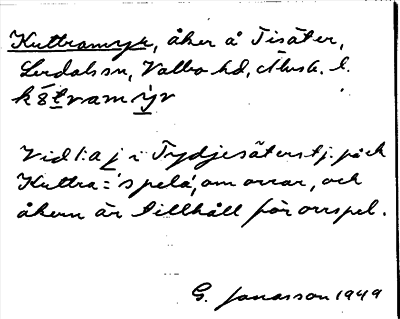 Kuttramyr, åker å Tisäter,
Lerdals sn, Valbo hd, Älvsb. l.
Vid l:a j i Tydjesäterstj. på ck
Kuttra = 'spela', om orrar, och
åkern är tillhåll för orrspel.
G. Jonasson 1949